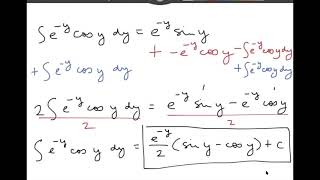 ∫e^{-y} cos y dy = e^{-y} sin y
+ -e^{-y} cos y - ∫e^{-y} cos y dy
+ ∫e^{-y} cos y dy + ∫e^{-y} cos y dy
2∫e^{-y} cos y dy = e^{-y} sin y - e^{-y} cos y
2 2
∫e^{-y} cos y dy = e^{-y}/2 (sin y - cos y) + C